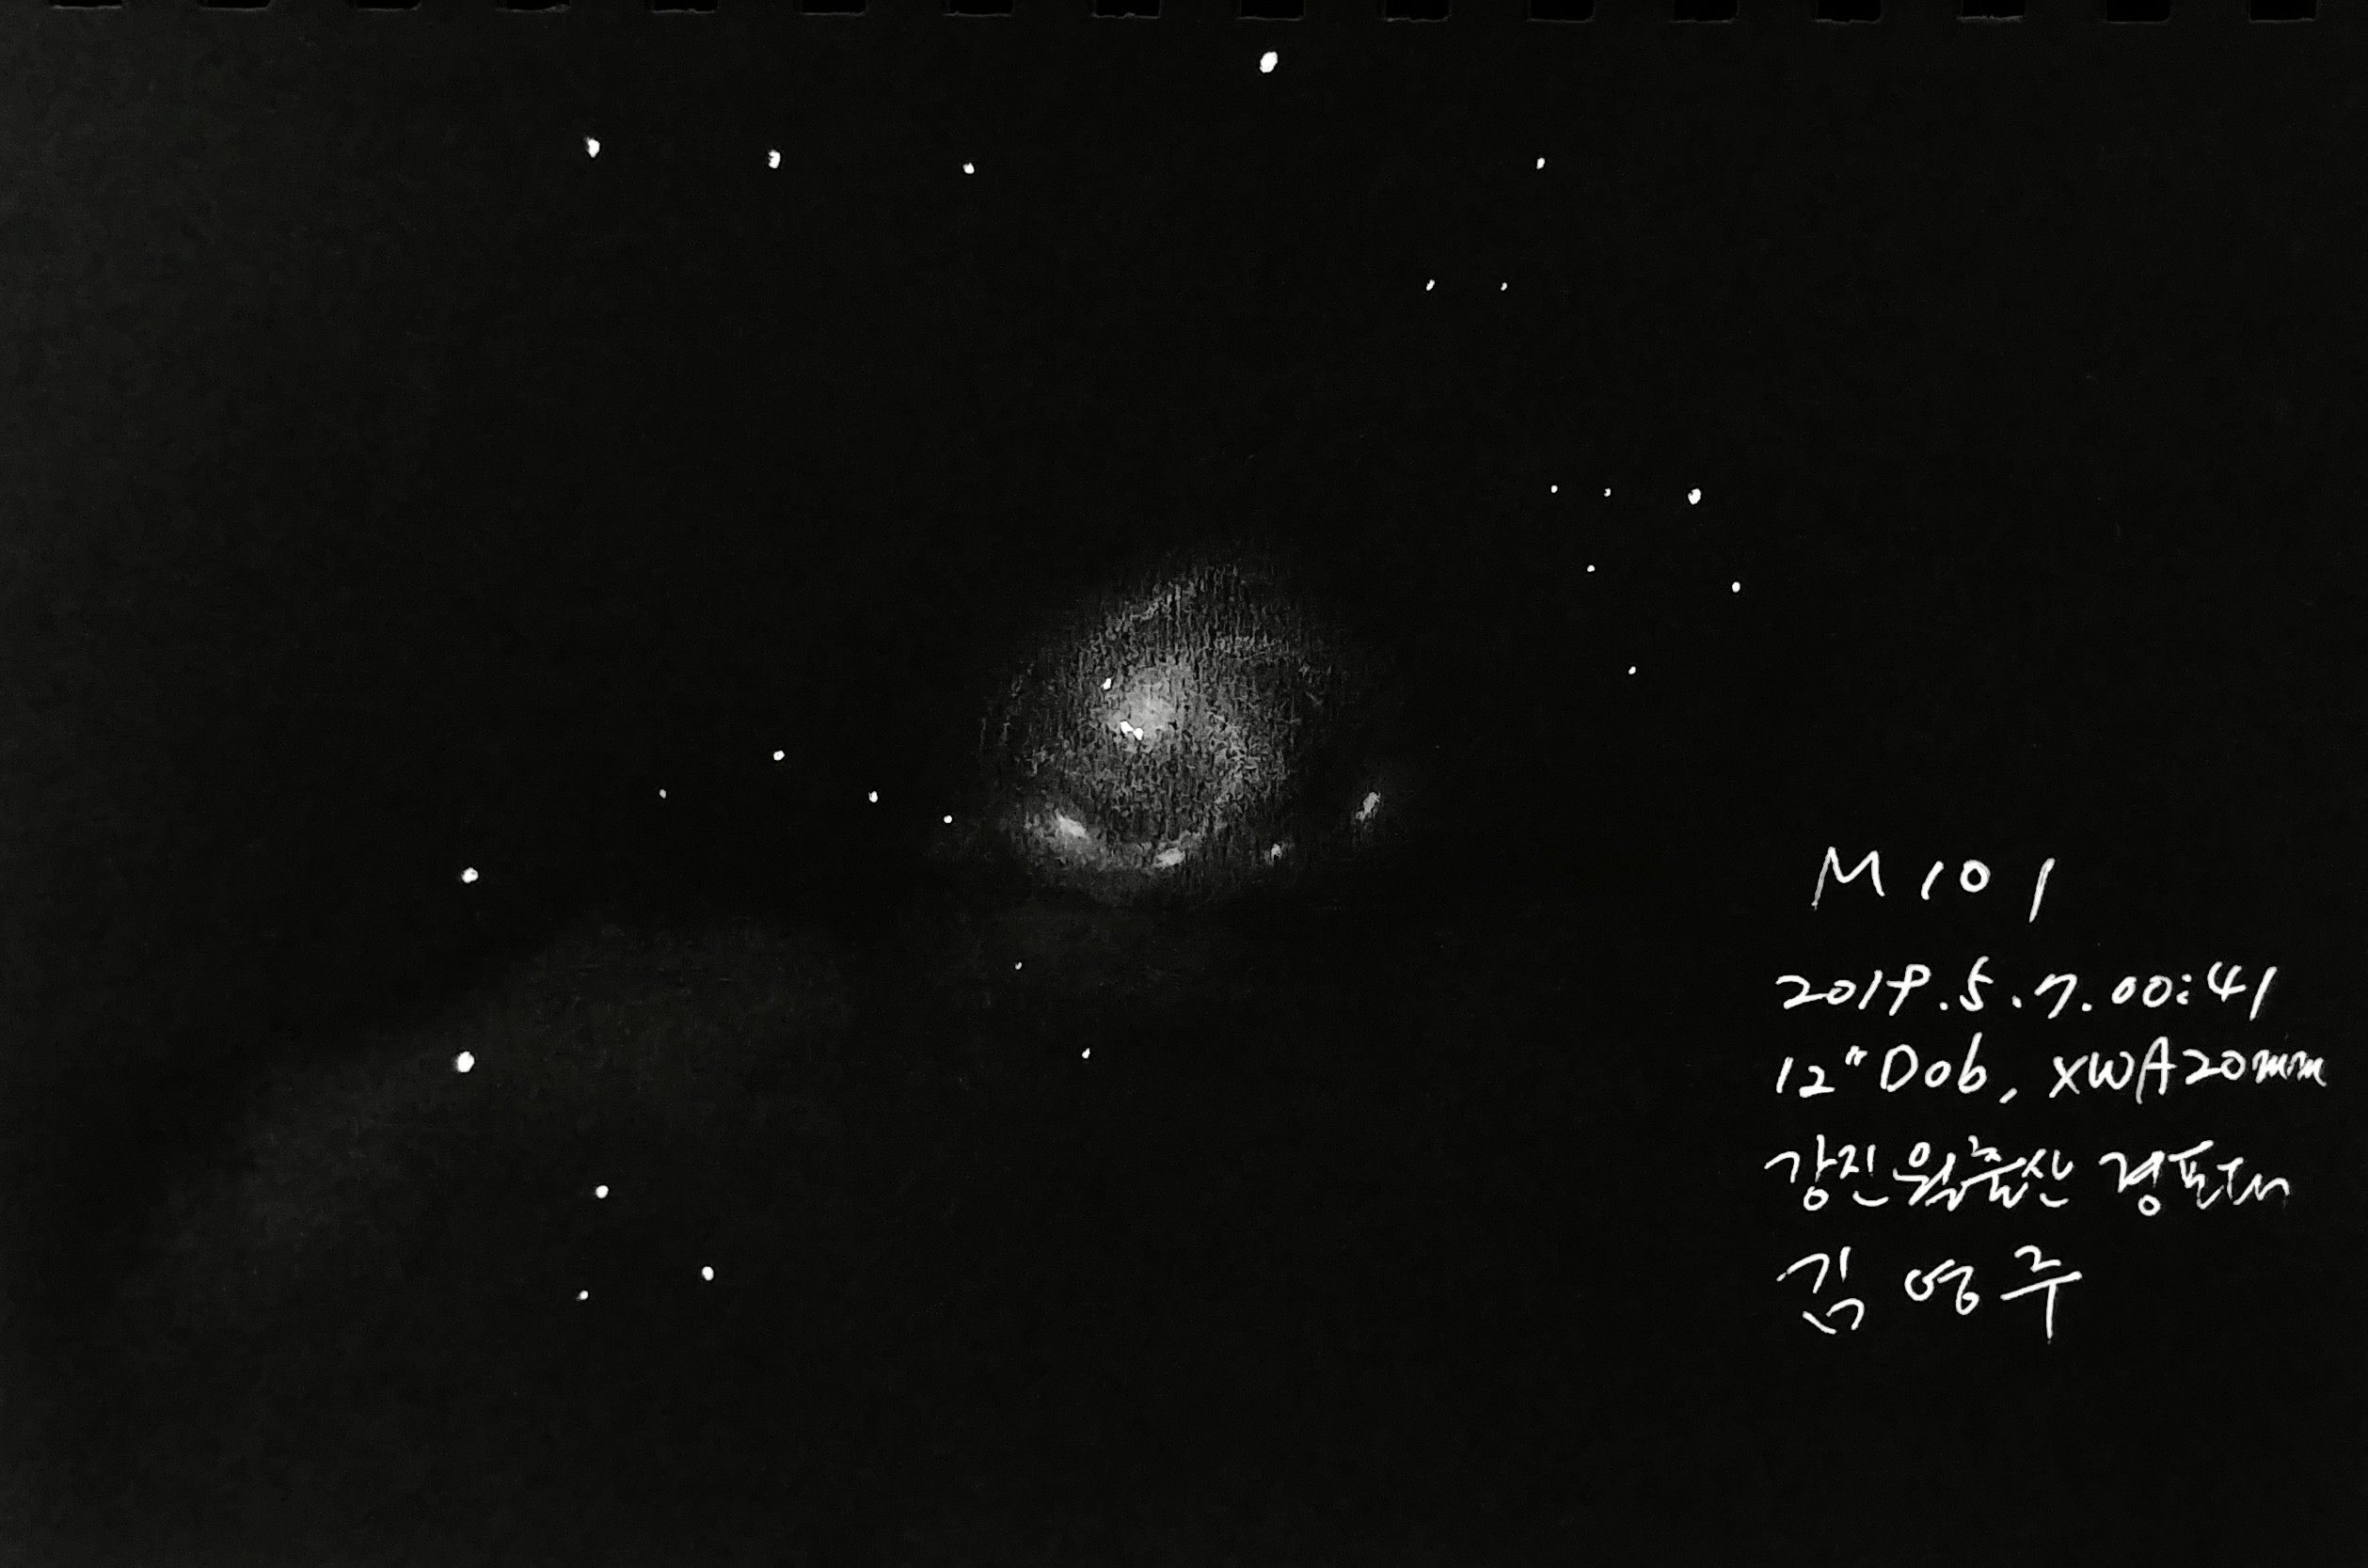 M101
2019.5.7.00:41
12"Dob, XWA20mm
강진월출산 경포대
김영주